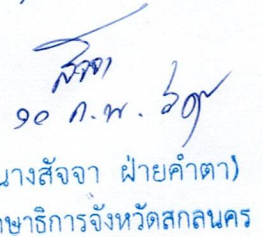 สัจจา
๑๐ ก.พ.
นางสัจจา ฝ่ายคำตา)
าษาธิการจังหวัดสกลนคร